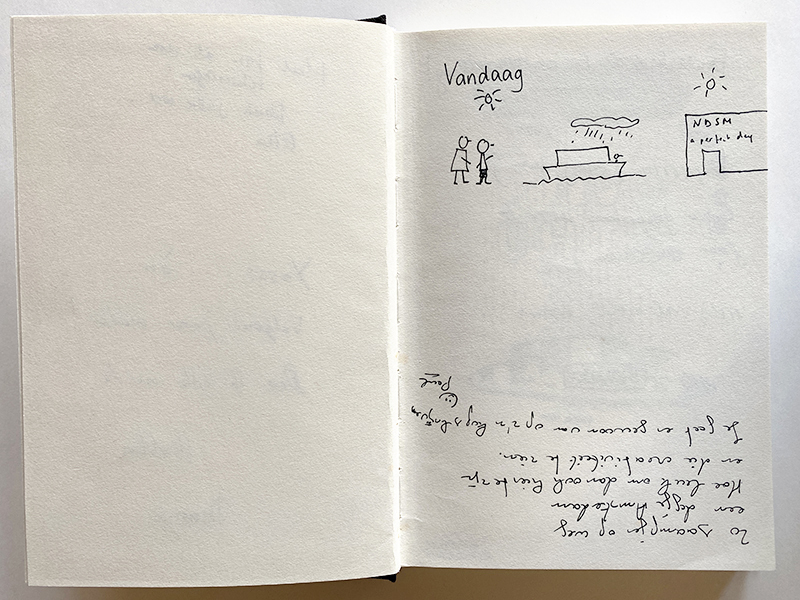 Vandaag
NDSM
a perfect day
Zo saampjes op weg
een dagje Amsterdam
Hoe leuk om dan ook hier te zijn
en die creativiteit te zien.
Je gaat er gewoon van op z'n kop schrijven
Paul